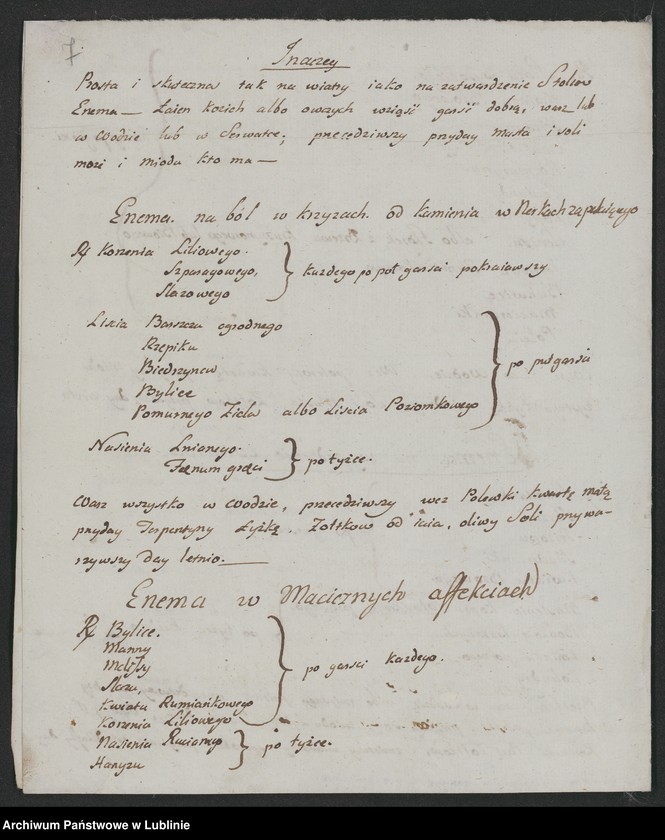 7
Inaczey
Prosta i skuteczna tak na wiatry iako na zatwardzenie Stolcow
Enema — Łaien kozich albo owczych wziąść garść dobrą, warz lub
w wodzie lub w Serwatce; precedziwszy przyday masła i soli
może i miodu kto ma —
Enema. na ból w krzyżach. od kamienia w Nerkach
℞ Korzenia Liliowego.
Szparagowego,
Slazowego
} każdego po puł garsci pokraiawszy.
Liscia Barszczu ogrodnego
Rzepiku
Biedrzyncu
Bylice
Pomurnego Ziela albo Liscia Poziomkowego
} po puł garsci
Nasienia Lnianego.
Fænum græci
} po łyżce.
Warz wszystko w wodzie, przecedziwszy wez Polewki kwartę małą
przyday Terpentyny Łyżkę. Zołtkow od iaia, oliwy Soli przywa-
rzywszy day letnio. —
Enema w Macicznych affekciach
℞ Bylice.
Manny
Melissy
Slazu,
Kwiatu Rumiankowego
Korzenia Liliowego
} po garsci każdego.
Nasienia
Hanyzu
} po łyżce.
Archiwum Państwowe w Lublinie